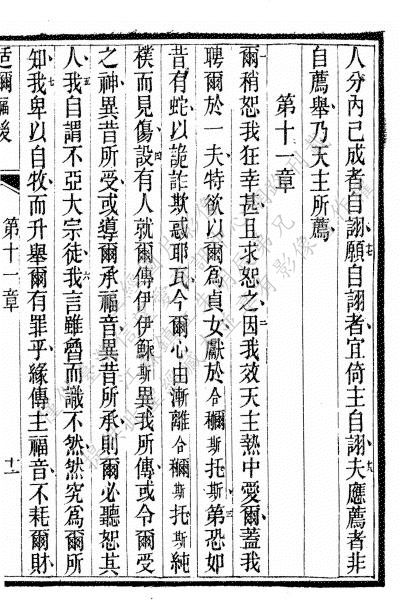 人分內已成者自詡願自詡者宜倚主自詡夫應薦者非
自薦舉乃天主所薦
第十一章
爾稍恕我狂幸甚且求恕之因我效天主熱中愛爾蓋我
聘爾於一夫特欲以爾爲貞女獻於合穪斯托斯第恐如
昔有蛇以詭詐欺惑耶瓦今爾心由漸離合穪斯托斯純
樸而見傷設有人就爾傳伊伊穌斯異我所傳或令爾受
之神異昔所受或導爾承福音異昔所承則爾必聽恕其
人我自謂不亞大宗徒我言雖魯而識不然然究爲爾所
知我卑以自牧而升舉爾有罪乎緣傳主福音不耗爾財
第十一章
十一